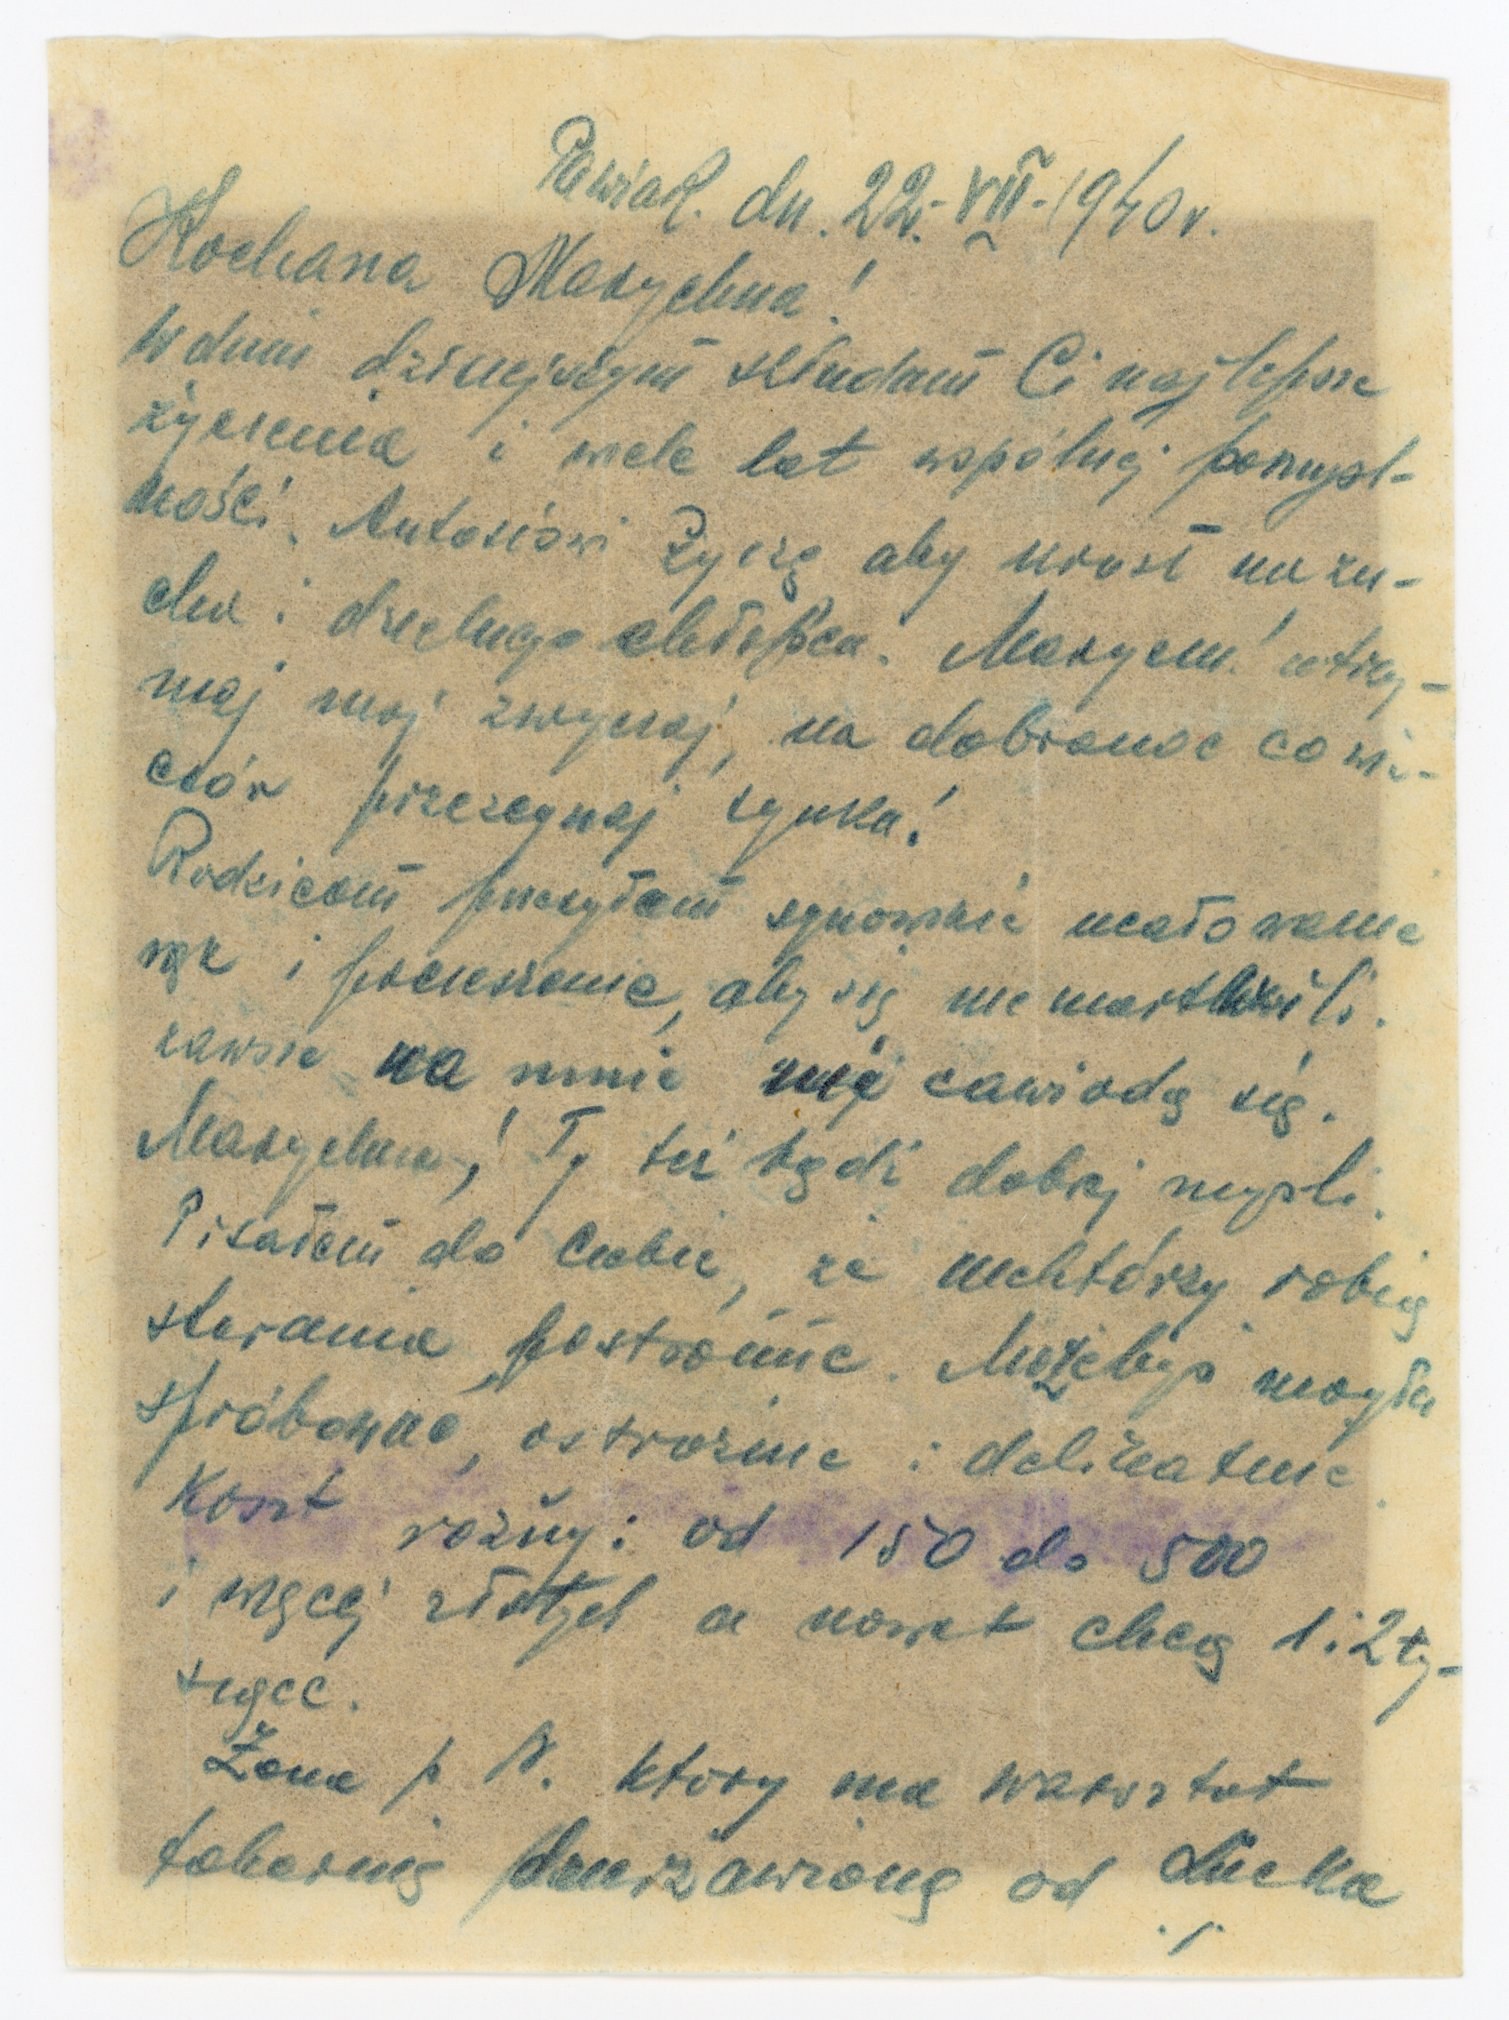 Pawiak. dn. 22.-VII-1940 r.
Kochana Marychna!
W dniu dzisiejszym składam Ci najlepsze
życzenia i wiele lat wspólnej pomyśl-
ności. Antosiowi życzę aby urosł na zu-
cha i dzielnego chłopca. Marycm! utrzy-
maj moj zwyczaj, na dobranoc co wie-
czór przeżegnaj synka!
Rodzicom przesyłam synowskie ucałowanie
rąk i pocieszenie, aby się nie martwili.
zawsze na mnie nie zawiodą się.
Marychna,! Ty też bądź dobrej myśli.
Pisałem do Ciebie, że niektórzy robią
starania postronnie. Możebyś mogła
spróbować, ostrożnie i delikatnie.
Koszt rożny: od 150 do 500
i więcej złotych a nawet chcą 1 i 2 ty-
siące.
Żona p N. ktory ma warsztat
tokarnię dzierżawioną od Lucka